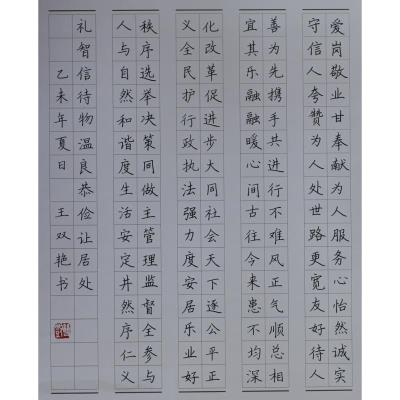 爱岗敬业甘奉献为人服务心怡然诚实
守信人夸赞为人处世路更宽友好待人
善为先携手共进行不难风正气顺总相
宜其乐融融暖心间古往今来患不均深
化改革促进步大同社会天下逐公平正
义全民护行政执法强力度安居乐业好
秩序选举决策同做主管理监督全参与
人与自然和谐度生活安定井然序仁义
礼智信待物温良恭俭让居处
乙未年夏日 王双艳书